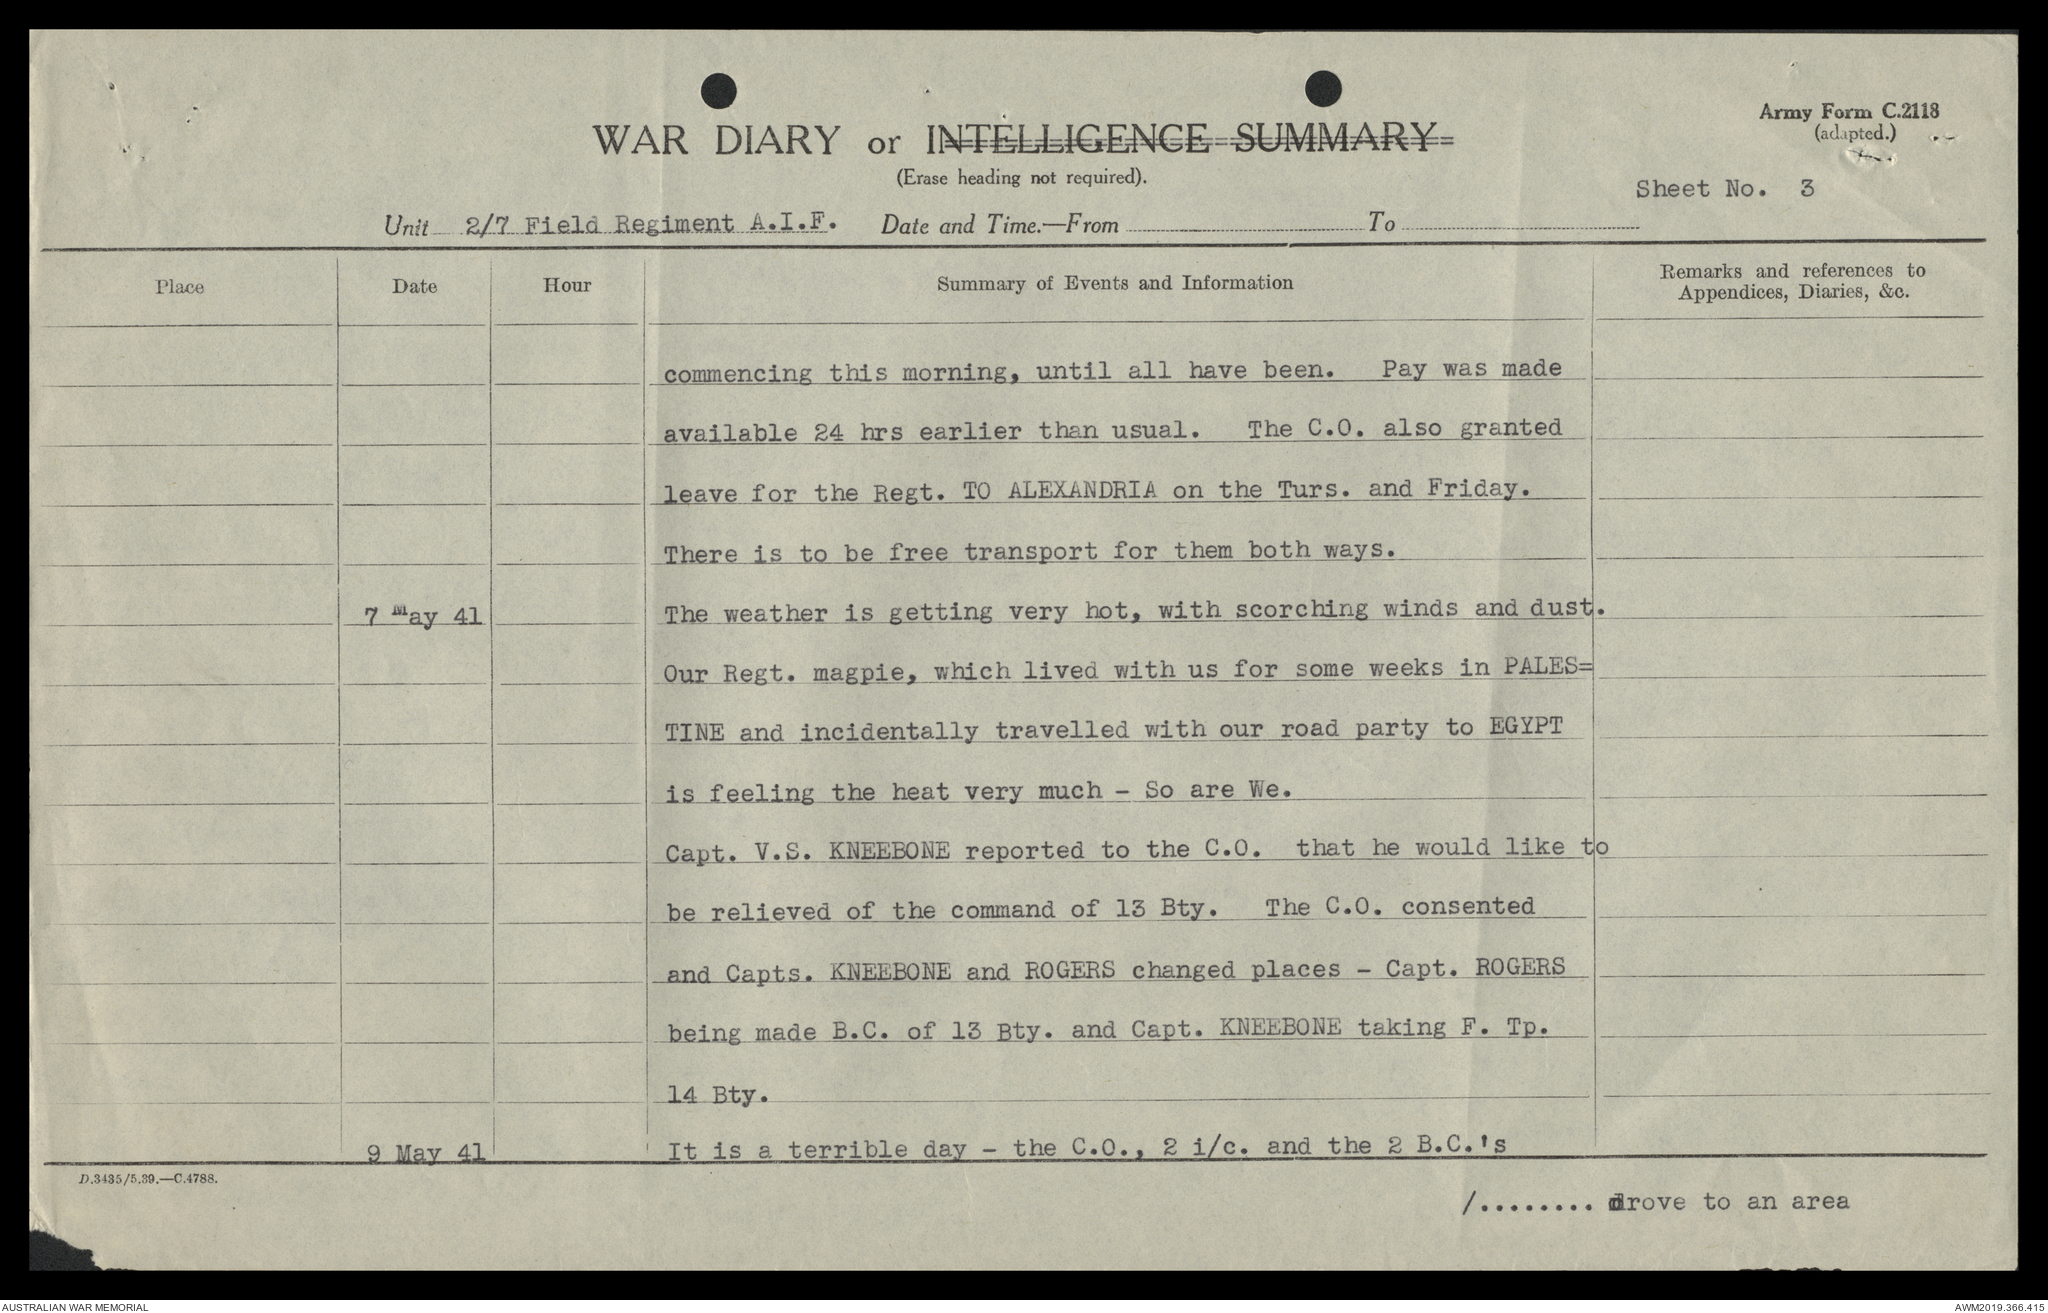 Army Form C.2118
(adapted.)
WAR DIARY or INTELLIGENCE SUMMARY
(Erase heading not required).
Sheet No. 3
Unit 2/7 Field Regiment A.I.F. Date and Time.—From To
Place Date Hour Summary of Events and Information Remarks and references to
Appendices, Diaries, &c.
commencing this morning, until all have been. Pay was made
available 24 hrs earlier than usual. The C.O. also granted
leave for the Regt. TO ALEXANDRIA on the Turs. and Friday.
There is to be free transport for them both ways.
7 May 41 The weather is getting very hot, with scorching winds and dust.
Our Regt. magpie, which lived with us for some weeks in PALES=
TINE and incidentally travelled with our road party to EGYPT
is feeling the heat very much - So are We.
Capt. V.S. KNEEBONE reported to the C.O. that he would like to
be relieved of the command of 13 Bty. The C.O. consented
and Capts. KNEEBONE and ROGERS changed places - Capt. ROGERS
being made B.C. of 13 Bty. and Capt. KNEEBONE taking F. Tp.
14 Bty.
9 May 41 It is a terrible day - the C.O., 2 i/c. and the 2 B.C.'s
D.3435/5.39.—C.4788.
/........ drove to an area
AUSTRALIAN WAR MEMORIAL
AWM2019.366.415